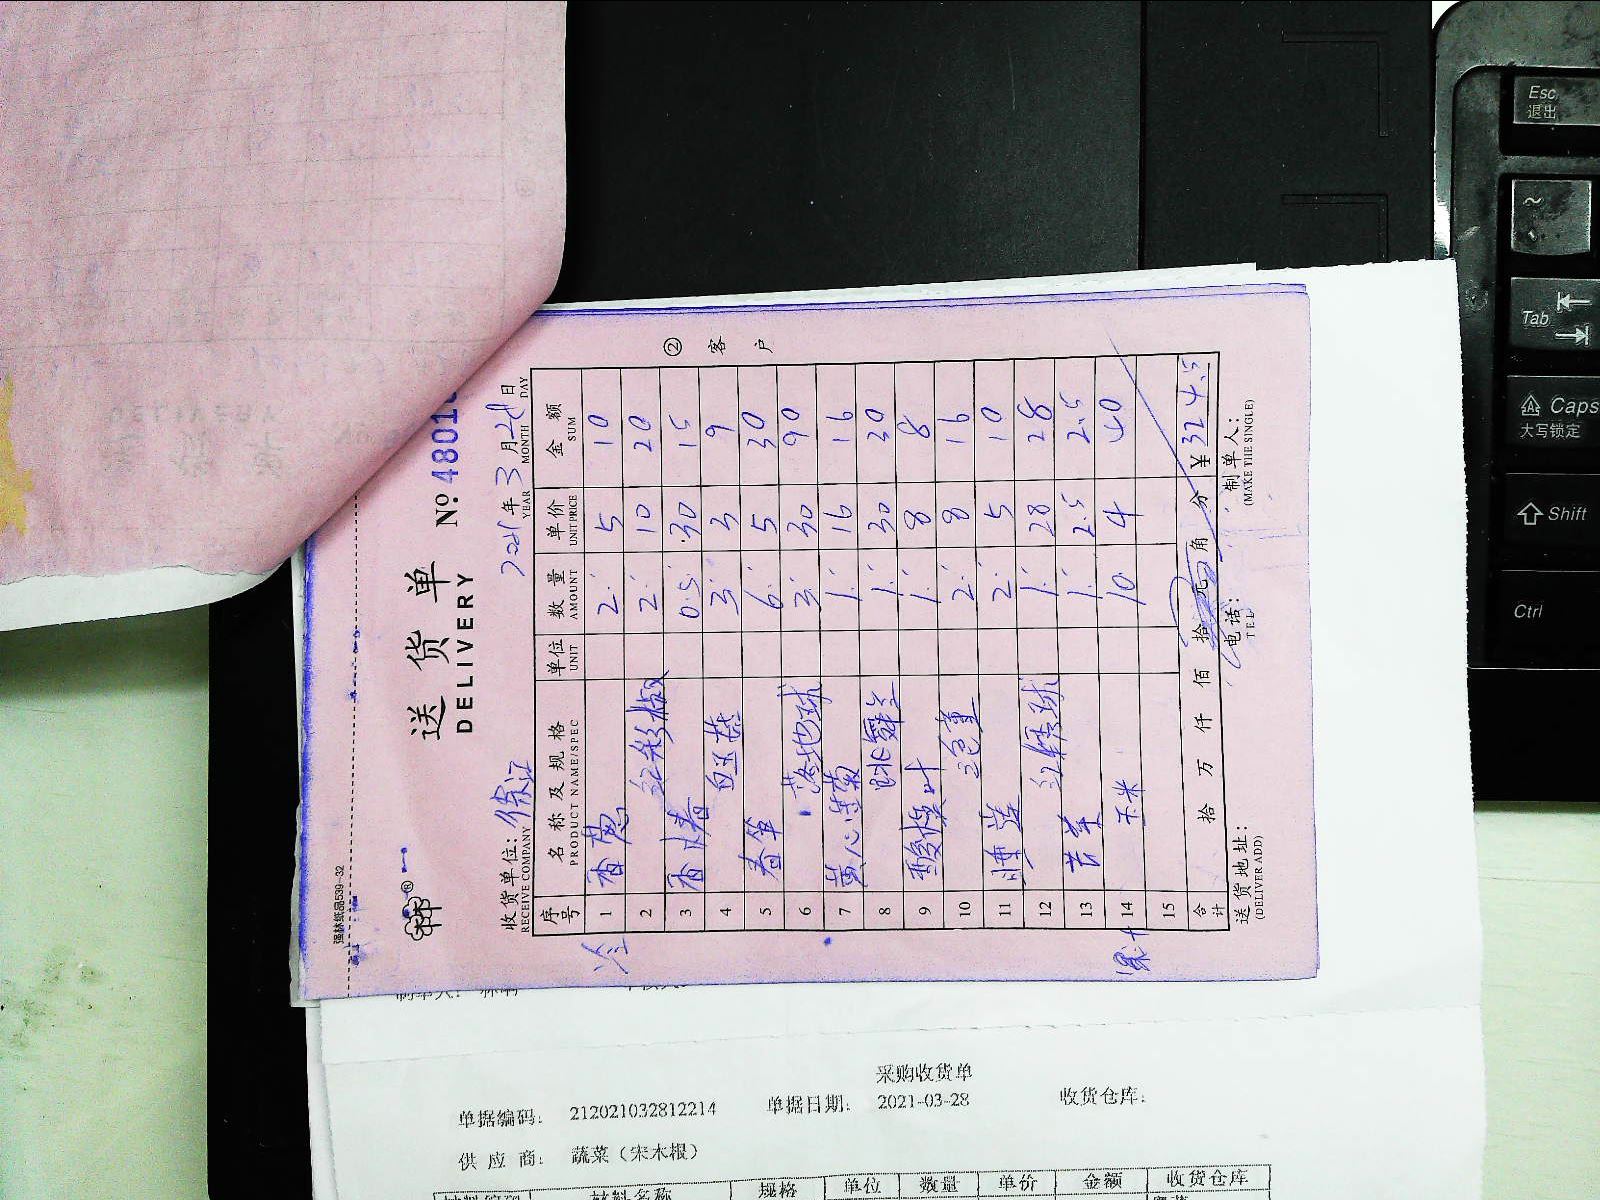 强林纸品539-32
送货单
DELIVERY
№ 4801
收货单位: 徐江
RECEIVE COMPANY
2021年 3月 28日
YEAR MONTH DAY
② 客户
序号 名称及规格 单位 数量 单价 金额
PRODUCT NAME/SPEC UNIT AMOUNT UNIT PRICE SUM
1 香葱 2 5 10
2 红彩椒 2 10 20
3 香椿 0.5 30 15
4 3 3 9
5 春笋 6 5 30
6 落地球 3 30 90
7 黄心生菊 1 16 16
8 跳舞兰 1 30 30
9 酸模叶 1 8 8
10 三色堇 2 8 16
11 薄荷 2 5 10
12 红绣球 1 28 28
13 苦菊 1 2.5 2.5
14 玉米 10 4 40
15
合计 拾 万 仟 佰 拾 元 角 分 ¥324.5
送货地址: 电话: 制单人:
(DELIVER ADD) TEL (MAKE THE SINGLE)
采购收货单
单据编码: 212021032812214 单据日期: 2021-03-28 收货仓库:
供应商: 蔬菜（宋木根）
材料编码 材料名称 规格 单位 数量 单价 金额 收货仓库
Esc
退出
~
Tab
Caps
大写锁定
Shift
Ctrl